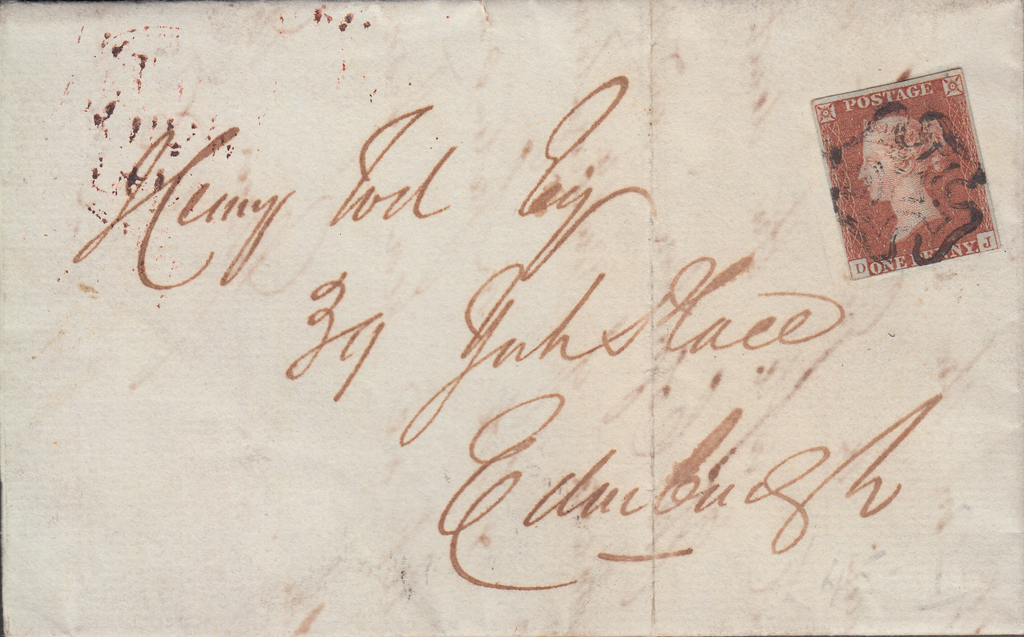 POSTAGE
D ONE PENNY. J
Henry Tod Esq
39 York Place
Edinburgh